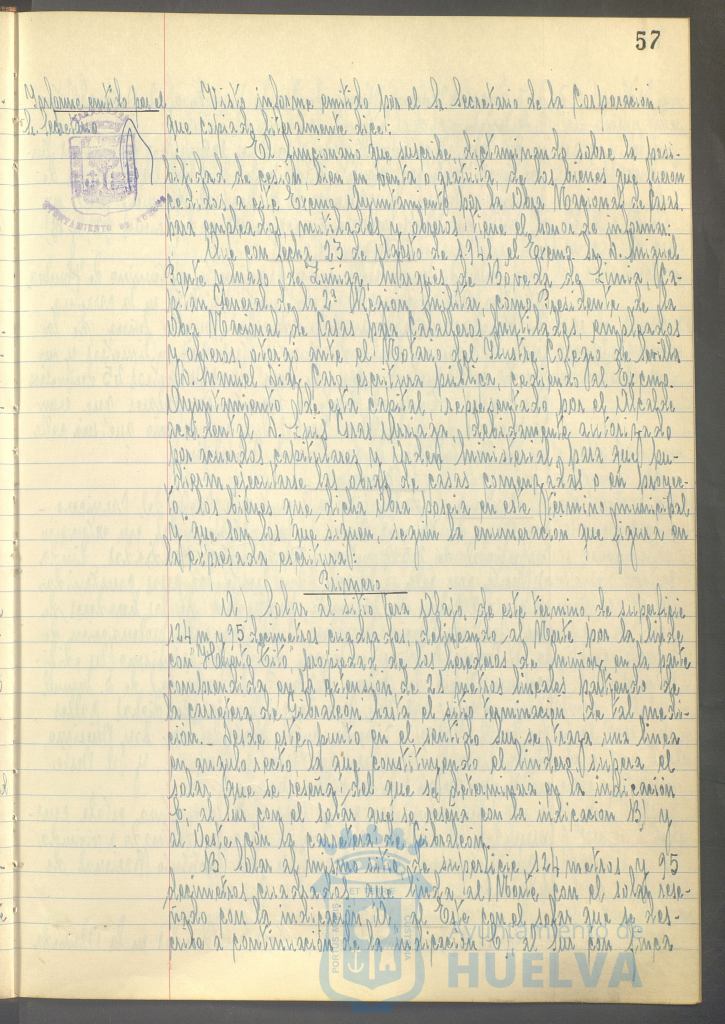 57
Informe emitido por el
Sr. Secretario
AYUNTAMIENTO DE HUELVA
Visto informe emitido por el Sr. Secretario de la Corporación,
que copiado literalmente dice:
El funcionario que suscribe, dictaminando sobre la posi-
bilidad de cesión, bien en venta o gratuita, de los bienes que fueron
cedidos a este Excmo Ayuntamiento por la Obra Nacional de Casas
para empleados, mutilados y obreros tiene el honor de informar:
Que con fecha 23 de Agosto de 1941, el Excmo Sr. D. Miguel
Ponte y Manso de Zúñiga, Marqués de Bóveda de Limia, Ca-
pitán General de la 2ª Región Militar, como Presidente de la
Obra Nacional de Casas para Caballeros Mutilados, empleados
y obreros, otorgó ante el Notario del Ilustre Colegio de Sevilla
D. Manuel Caro, escritura pública, cediendo al Excmo.
Ayuntamiento de esta capital, representado por el Alcalde
accidental D. debidamente autorizado
por acuerdos capitulares y Orden Ministerial para que pu-
dieran ejecutarse las obras de casas comenzadas o en proyec-
to, los bienes que dicha Obra poseia en este término municipal
y que son los que siguen, según la enumeración que figura en
la expresada escritura:
Primero
A) Solar al sitio Vera Abajo, de este término, de superficie
124 m. y 95 decímetros cuadrados, lindando al Norte por la linde
con "Huerto Tito" propiedad de los herederos de Muñoz en la parte
comprendida en la extensión de 21 metros lineales partiendo de
la carretera de Gibraleón hasta el sitio terminación de tal medi-
ción.- Desde este punto en el sentido Sur se traza una línea
en ángulo recto la que constituyendo el lindero separa el
solar que se reseña del que se determina en la indicación
C; al Sur con el solar que se reseña con la indicación B) y
al Oeste con la carretera de Gibraleón.
B) Solar al mismo sitio de superficie 124 metros y 95
decímetros cuadrados que linda al Norte con el solar rese-
ñado con la indicación A; al Este con el solar que se des-
cribe a continuación de la indicación C y al Sur con finca
Ayuntamiento de
HUELVA